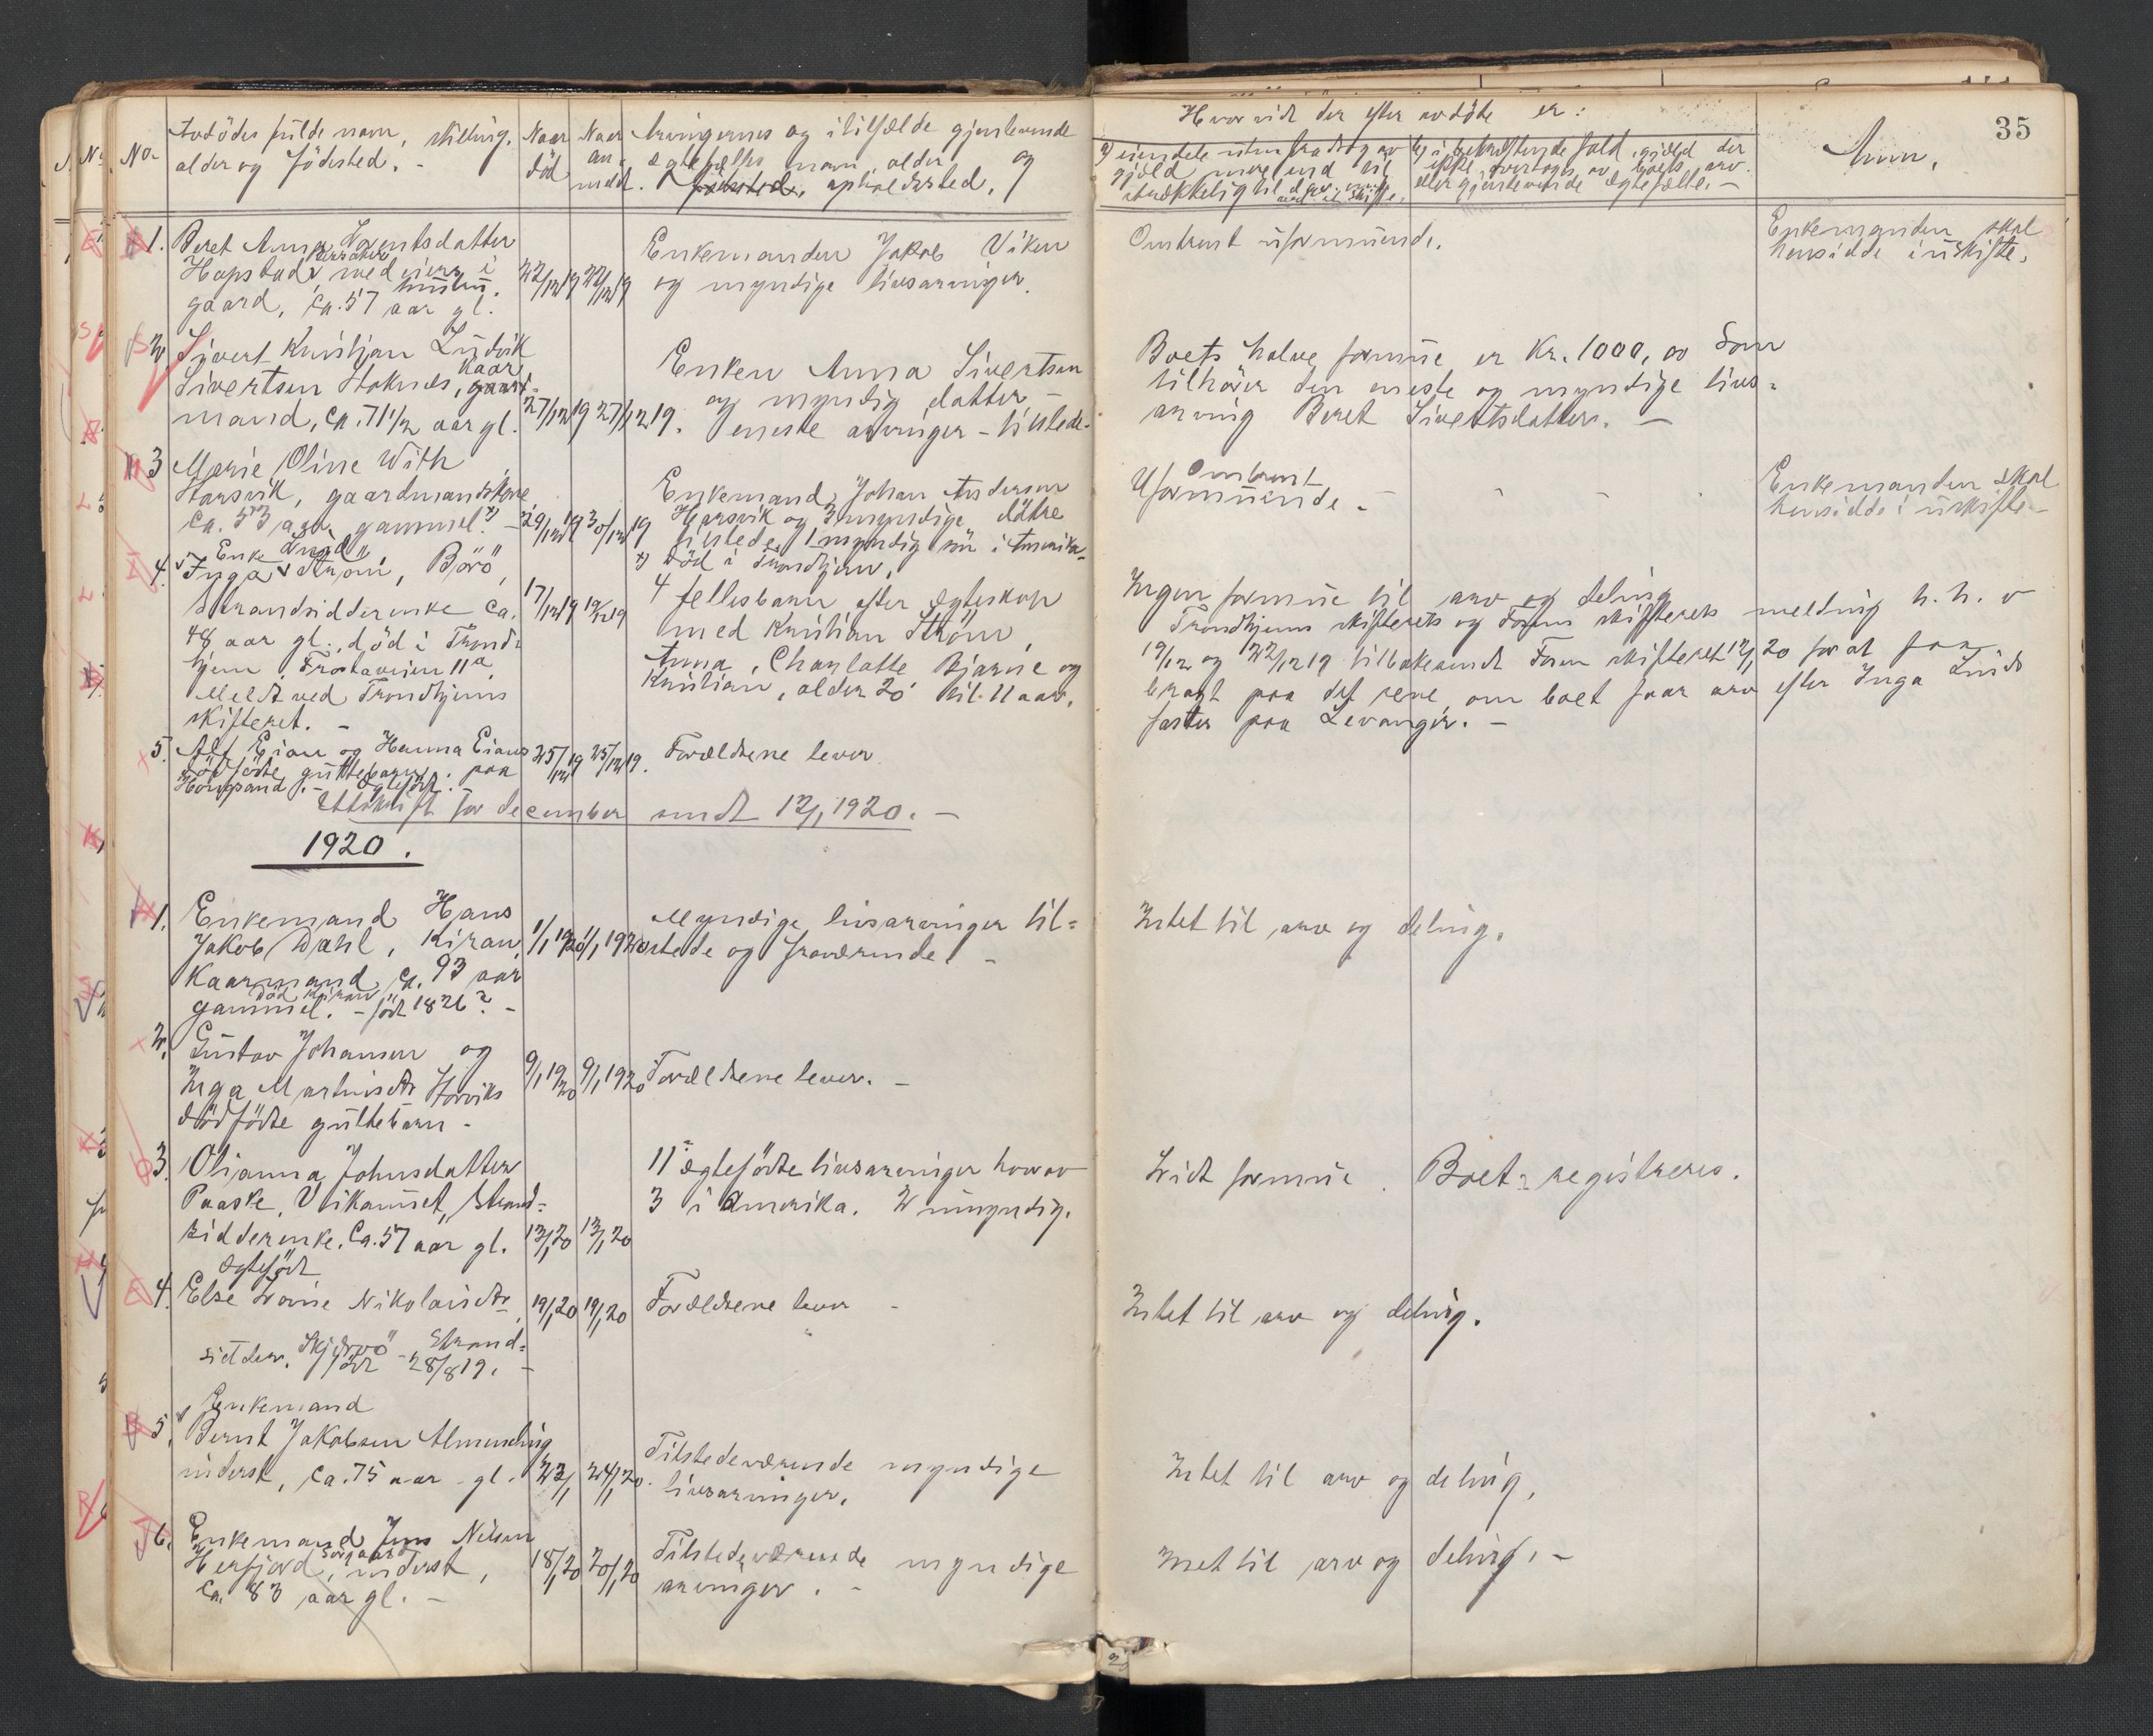 35
No.
Avdödes fulde navn, stilling,
alder og födested. -
Naar
död
Naar
an-
meldt.
Arvingernes og i tilfælde gjenlevende
ægtefælles navn, alder, og
opholdssted,
Hvorvidt der efter avdöde er:
a) eiendele uten fradrag av
gjæld mere end til
strækkelig til
b) i bekræftende fald, gjæld der
ikke overtages av boets arv.
eller gjenlevende ægtefælle. -
Anm.
1. Beret Anna Lorentsdatter
Hopstad, medeiers i
gaard, ca. 57 aar gl.
22/12 19
22/12 19
Enkemanden Jakob Viken
og myndige livsarvinger.
Omtrent uformuende.
Enkemanden skal
hensidde i uskifte.
2. Sivert Kristjan Ludvik
Sivertsen Stoknes, kaar
mand, ca. 71 1/2 aar gl.
27/12 19
27/12 19.
Enken Anna Sivertsen
og myndig datter -
eneste arvinger - tilstede.
Boets halve formue er Kr. 1000,00 som
tilhörer den eneste og myndige livs-
arving Beret Sivertsdatter. -
3 Marie Oline With
Harsvik, gaardmandskone
ca. 53 aar gammel. x) -
29/12 19
30/12 19
Enkemand Johan Andersen
Harsvik og 3 myndige dötre
tilstede, 1 myndig sön i Amerika -
x) Död i Trondhjem.
Omtrent
Uformuende. -
Enkemanden skal
hensidde i uskifte -
4. Enke Lund
Inga Ström, Börö,
strandsidderenke ca.
48 aar gl., död i Trond-
hjem, Frostaveien 11a,
Meldt ved Trondhjems
skifteret. -
17/12 19
19/12 19
4 fellesbarn efter ægteskap
med Kristian Ström,
Anna, Charlotte Bjarne og
Kristian, alder 20 til 11 aar.
Ingen formue til arv og deling
Trondhjems skifterets og Fosens skifterets melding h. h. v
19/12 og 22/12 19 tilbakesendt Fosen skifteret 12/1 20 for at faa
bragt paa det rene, om boet faar arv efter Inga Lunds
faster paa Levanger. -
5. Alf Eian og Hanna Eians
dödfödte guttebarn. paa
Hongsand. - Ægtefödt.
25/12 19
25/12 19.
Forældrene lever
Utskrift for december sendt 12/1 1920. -
1920.
1. Enkemand Hans
Jakob Dahl, Kiran,
Kaarmand, ca. 93 aar
död Kiran
gammel. - födt 1826? -
1/1 1920
1/1 1920
Myndige livsarvinger til-
stede og fraværende. -
Intet til arv og deling.
2. Gustav Johansen og
Inga Martinsdtr Horviks
dödfödte guttebarn -
9/1 1920
9/1 1920
Forældrene lever. -
3. Olianna Johnsdatter
Paaske, Vikanset, Strand-
sidderenke. Ca. 57 aar gl.
13/1 20
13/1 20
11 ægtefödte livsarvinger hvorav
3 i Amerika. 2 umyndig.
Lidt formue. Boet registreres.
Ægtefödt
4. Else Lovise Nikolaisdtr,
Skjervö - Strand-
sidder. född 28/8 19. -
19/1 20
19/1 20
Forældrene lever -
Intet til arv og deling.
Enkemand
5. Bernt Jakobsen Almenning
inderst, ca. 75 aar gl.
23/1
24/1 20.
Tilstedeværende myndige
livsarvinger.
Intet til arv og deling,
6. Enkemand Jens Nilsen
Herfjord, inderst,
ca. 83 aar gl. -
18/1 20
20/1 20
Tilstedeværende myndige
arvinger. -
Intet til arv og deling. -